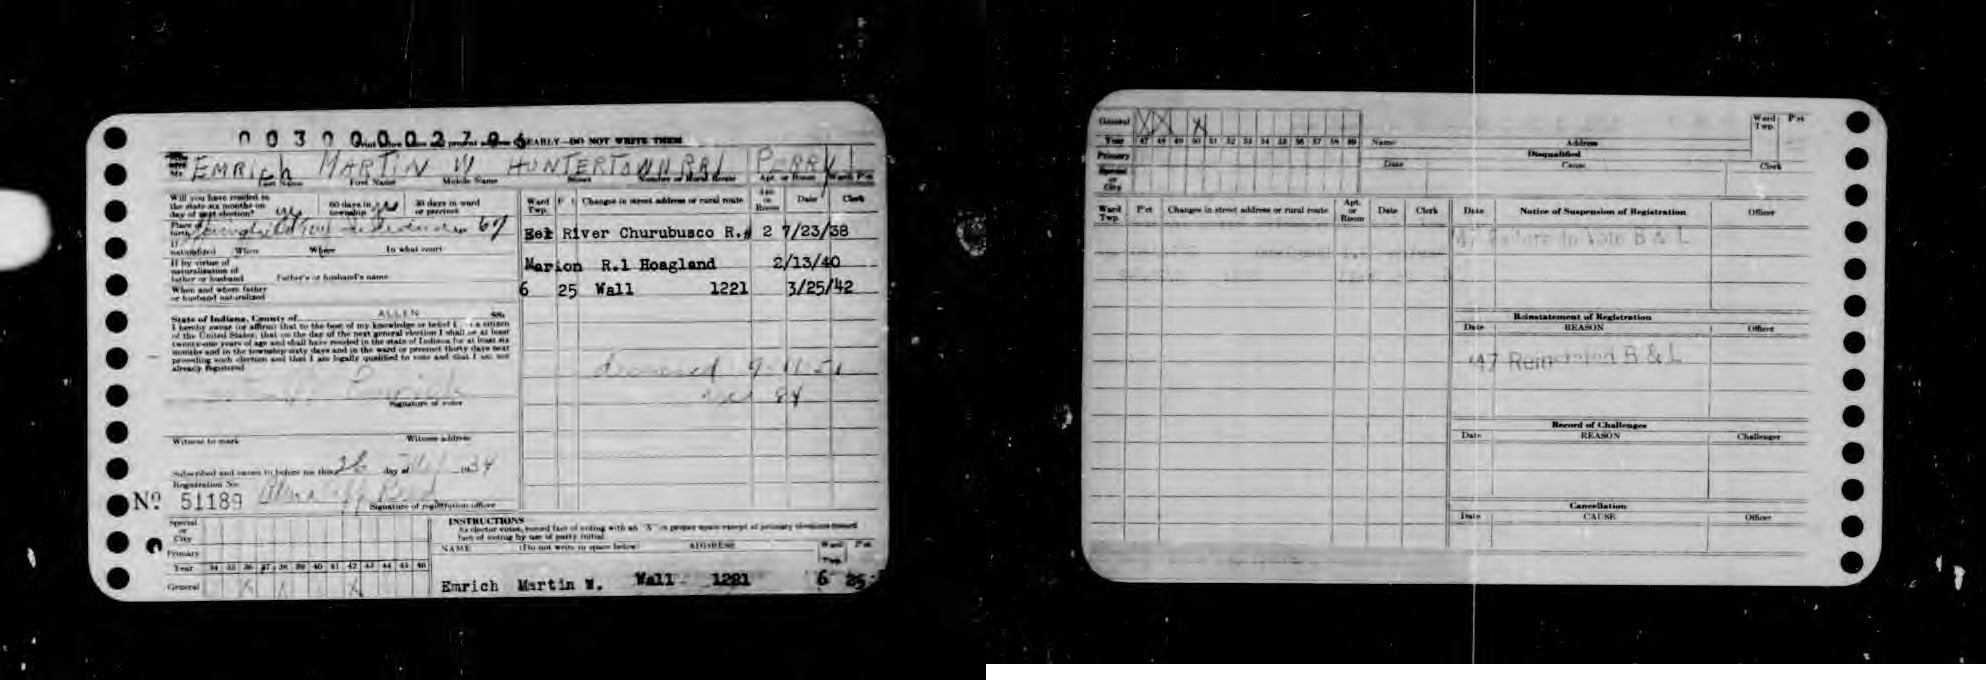 0 0 3 0 0 0 0 2 7 0 6
CLEARLY—DO NOT WRITE THEM
EMRICH MARTIN W HUNTERTOWN RR1 PERRY
Last Name First Name Middle Name Street Number or Rural Route Apt. or Room Ward Pct
Will you have resided in the state six months on day of next election? yes 60 days in township yes 30 days in ward or precinct
Place of birth Age 67
If naturalized When Where In what court
If by virtue of naturalization of father or husband Father's or husband's name
When and where father or husband naturalized
State of Indiana, County of ALLEN SS:
I hereby swear (or affirm) that to the best of my knowledge or belief I a citizen
of the United States; that on the day of the next general election I shall be at least
twenty-one years of age and shall have resided in the state of Indiana for at least six
months and in the township sixty days and in the ward or precinct thirty days next
preceding such election and that I am legally qualified to vote and that I am not
already registered
Emrich
Signature of voter
Witness to mark Witness address
Subscribed and sworn to before me this 26 day of 1934
Registration No.
No. 51189
Signature of registration officer
Ward Twp. Changes in street address or rural route Apt. or Room Date Clerk
Eel River Churubusco R.# 2 7/23/38
Marion R.1 Hoagland 2/13/40
6 25 Wall 1221 3/25/42
deceased 9-11-51
age 84
Special or City
Primary
Year 34 35 36 37 38 39 40 41 42 43 44 45 46
General X X X
INSTRUCTIONS
As elector votes, record fact of voting with an "X" in proper space except at primary elections record
fact of voting by use of party initial
NAME (Do not write in space below) ADDRESS Ward Twp. Pct
Emrich Martin W. Wall 1221 6 25
General X X X
Year 47 48 49 50 51 52 53 54 55 56 57 58 59
Primary
Special or City
Name Address Ward Twp. Pct
Disqualified
Date Cause Clerk
Ward Twp. Pct Changes in street address or rural route Apt. or Room Date Clerk
Date Notice of Suspension of Registration Officer
'47 Failure to Vote B & L
Reinstatement of Registration
Date REASON Officer
'47 Reinstated B & L
Record of Challenges
Date REASON Challenger
Cancellation
Date CAUSE Officer